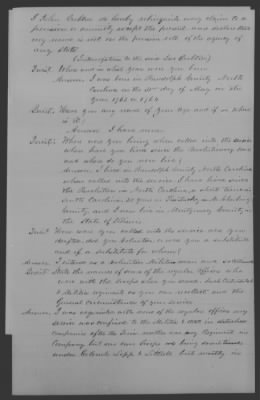 I John Crabtree do hereby relinquish every claim to a
pension or annuity except the present and declare that
my name is not on the pension roll of the agency of
any State
(Interrogatories to the same John Crabtree)
Quest. When and in what year were you born
Answer I was born in Randolph County North
Carolina on the day of May in the
year 1763 or 1764
Quest. Have you any record of your age and if so where
is it?
Answer I have none
Quest. Where were you living when called into the service
where have you lived since the Revolutionary War
and where do you now live?
Answer I lived in Randolph County North Carolina
when called into the service I have lived since
the Revolution in North Carolina, a short time in
South Carolina 20 years in Kentucky in Muhlenburg
County, and I now live in Montgomery County in
the State of Illinois
Quest. How were you called into the service were you
drafted, did you volunteer or were you a substitute
and if a substitute for whom?
Answer I entered as a volunteer Militia man and
Quest. State the names of some of the regular officers who
were with the troops when you served, such Continental
& Militia regiments as you can recollect and the
General circumstances of your service
Answer I was acquainted with none of the regular officers my
service was confined to the Militia & was in detached
companies after the Tories neither was any Regiment in
Company but our own Troops we being sometimes
under Colonels & Littrell but mostly in